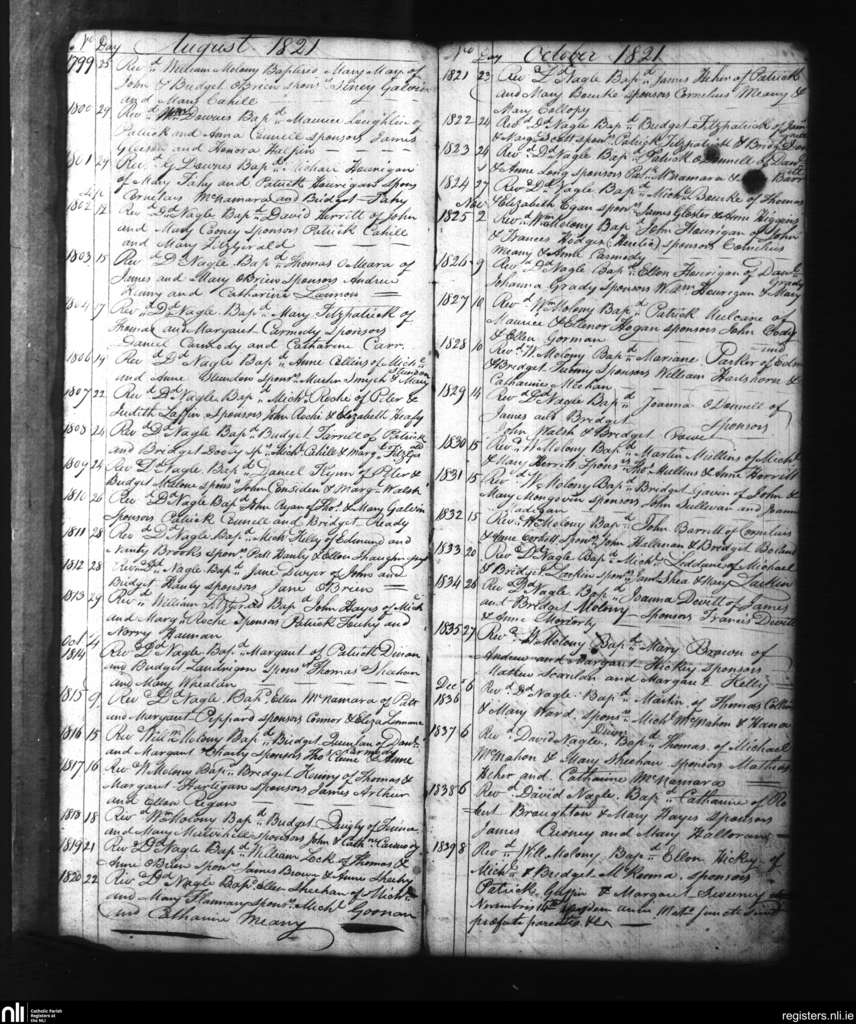 No Day August 1821
1799 25 Revd William Molony Baptised Mary May of
John & Bridget OBrien sponsr Tiney Galvin
and Mary Cahill
1800 29 Revd Wm Downes Bapd Maurice Loughlin of
Patrick and Anna Cunell sponsors James
Gleeson and Honora Halpin
1801 29 Revd G Downes Bapd Michael Hourigan
of Mary Fahy and Patrick Hourigan Spons
Cornelius McNamara and Bridget Fahy
Sep
1802 12 Revd Dd Nagle Bapd David Herrill of John
and Mary Cooney Sponsors Patrick Cahill
and Mary Fitzgerald
1803 15 Revd Dd Nagle Bapd Thomas OMeara of
James and Mary OBrien Sponsors Andrew
and Catharine Lannon
1804 17 Revd Dd Nagle Bapd Mary Fitzpatrick of
Thomas and Margaret Carmody Sponsors
Daniel Carmody and Catharine Carr
1806 14 Revd Dd Nagle Bapd Anne Collins of Michl
and Anne sponsr Smyth & Mary
1807 22 Revd Dd Nagle Bapd Michl Roche of Peter &
Judith Laffin Sponsors John Roche & Elizabeth Heafy
1808 24 Revd Dd Nagle Bapd Bridget Farrell of Patrick
and Bridget Dooly spr Michl Cahill & Margt FitzGd
1809 24 Revd Dd Nagle Bapd Daniel Flynn of Peter &
Bridget Malone sponsr John Considen & Margt Walsh
1810 26 Revd Dd Nagle Bapd John Ryan of Thos & Mary Galvin
Sponsors Patrick Cunell and Bridget Ready
1811 28 Revd Dd Nagle Bapd Mich Kelly of Edmund and
Nanty Brooks sponsr Patt Hanly & Ellen
1812 28 Revd Dd Nagle Bapd Jane Dwyer of John and
Bridget Hanly sponsors Jane OBrien
1813 29 Revd William FitzGerald Bapd John Hayes of Mich
and Margt Roche Sponsors Patrick and
Norry Hannan
Oct
1814 4 Revd Dd Nagle Bapd Margaret of Patrick Dixon
and Bridget Landrigan Sponsr Thomas Sheehan
and Mary Whealan
1815 9 Revd Dd Nagle Bapd Ellen McNamara of Patt
and Margaret Peppard sponsors Connor & Eliza
1816 15 Revd Willm Molony Bapd Bridget Quinlan of Danl
and Margaret sponsors Thos & Anne Carmody
1817 16 Revd W Molony Bapd Bridget Kenny of Thomas &
Margaret Hartigan Sponsors James Arthur
and Ellen Regan
1818 18 Revd Wm Molony Bapd Bridget Quigly of
and Mary sponsors John & Cathne
1819 21 Revd Dd Nagle Bapd William Lock of Thomas &
Anne OBrien Sponr James Brown & Anne Sheehy
1820 22 Revd Dd Nagle Bapd Ellen Sheehan of Michl
and Mary Flannary sponsr Michl Goonan
and Catharine Meany
No Day October 1821
1821 23 Revd Dd Nagle Bapd James Heher of Patrick
and Mary Bourke sponsors Cornelius Meany &
Mary Collopy
1822 24 Revd Dd Nagle Bapd Bridget Fitzpatrick of James
& Mary Scott sponr Patrick Fitzpatrick & Bridgt
1823 24 Revd Dd Nagle Bapd Patrick ODonnell of Danl
& Anne Long Sponsors Patt McNamara &
1824 27 Revd Dd Nagle Bapd Michl Bourke of Thomas
& Elizabeth Egan sponr James Gloster & Anne Higgins
Nov
1825 2 Revd Wm Molony Bap John Hourigan of John
& Frances Hodges sponsors Cornelius
Meany & Anne Carmody
1826 9 Revd Dd Nagle Bapd Ellen Hourigan of Danl &
Johanna Grady Sponsors Willm Hourigan & Mary Grady
1827 10 Revd Wm Molony Bapd Patrick Mulcare of
Maurice & Ellenor Hogan sponsors John Cody
& Ellen Gorman
1828 10 Revd W Molony Bapd Mariane Parker of Edm
& Bridget sponsors William Hartshorn &
Catharine Mechan
1829 14 Revd Dd Nagle Bapd Joanna ODonnell of
James and Bridget Sponsors
John Walsh & Bridget Crowe
1830 15 Revd W Molony Bap Martin Mullins of Michl
& Mary Herrill Sponsr Thos Mullins & Anne Herrill
1831 15 Revd W Molony Bapd Bridget Gavin of John &
Mary Mongovin sponsors John Sullivan and
Cadigan
1832 15 Revd Wm Molony Bapd John Barrett of Cornelius
& Jane Corbett sponr John Halpman & Bridget Boland
1833 20 Revd Dd Nagle Bapd Michl Leddane of Michael
& Bridget Larkin sponr Jams Shea & Mary Larkin
1834 26 Revd Dd Nagle Bapd Joanna Devitt of James
and Bridget Molony Sponsors Francis Devitt
& Anne Moriarty
1835 27 Revd W Molony Bapd Mary Brown of
Andrew and Margaret Hickey sponsors
Mathew Scanlan and Margaret Kelly
Decr
1836 6 Revd Dd Nagle Bapd Martin of Thomas Collins
& Mary Ward sponsr Michl McMahon & Hanna
1837 6 Revd David Nagle Bapd Thomas of Michael
McMahon & Mary Sheehan sponsors Mathias
Heher and Catharine McNamara
1838 6 Revd David Nagle Bapd Catharine of Ro
bert Broughton & Mary Hayes sponsors
James Cusney and Mary Halloran
1839 8 Revd W Molony Bapd Ellen Hickey of
Michl & Bridget McKenna sponsors
Patrick Giffin & Margaret Sweeney
Novembris 14 die anno Michl juncti sunt
præfati parentes &c
nli Catholic Parish
Registers at
the NLI
registers.nli.ie